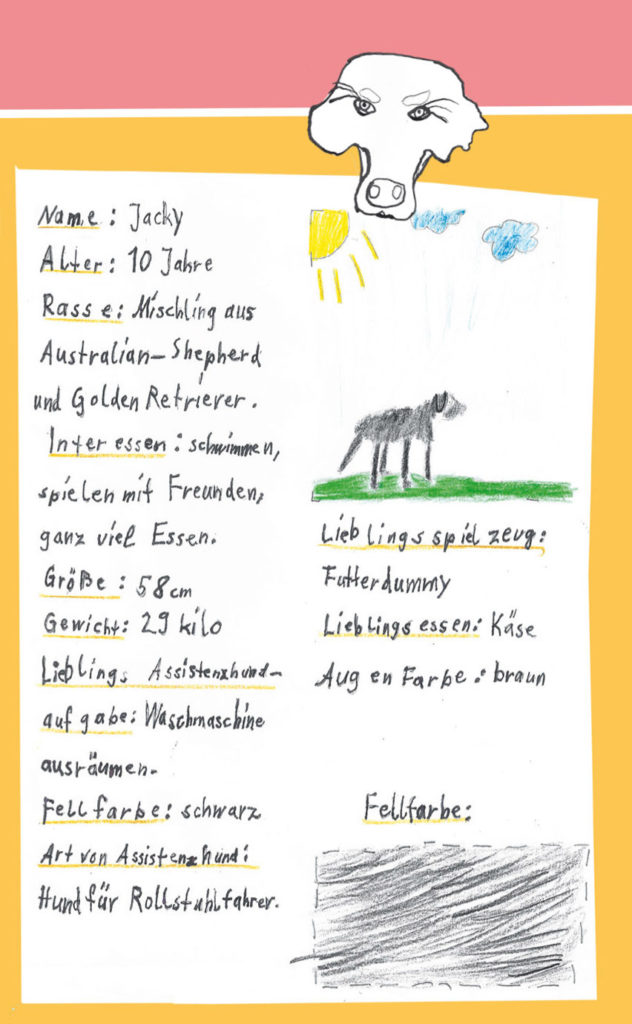 Name: Jacky
Alter: 10 Jahre
Rasse: Mischling aus
Australian-Shepherd
und Golden Retriever.
Interessen: schwimmen,
spielen mit Freunden,
ganz viel Essen.
Größe: 58cm
Gewicht: 29 kilo
Lieblings Assistenzhund-
aufgabe: Waschmaschine
ausräumen.
Fellfarbe: schwarz
Art von Assistenzhund:
Hund für Rollstuhlfahrer.
Lieblingsspielzeug:
Futterdummy
Lieblingsessen: Käse
Augen Farbe: braun
Fellfarbe: